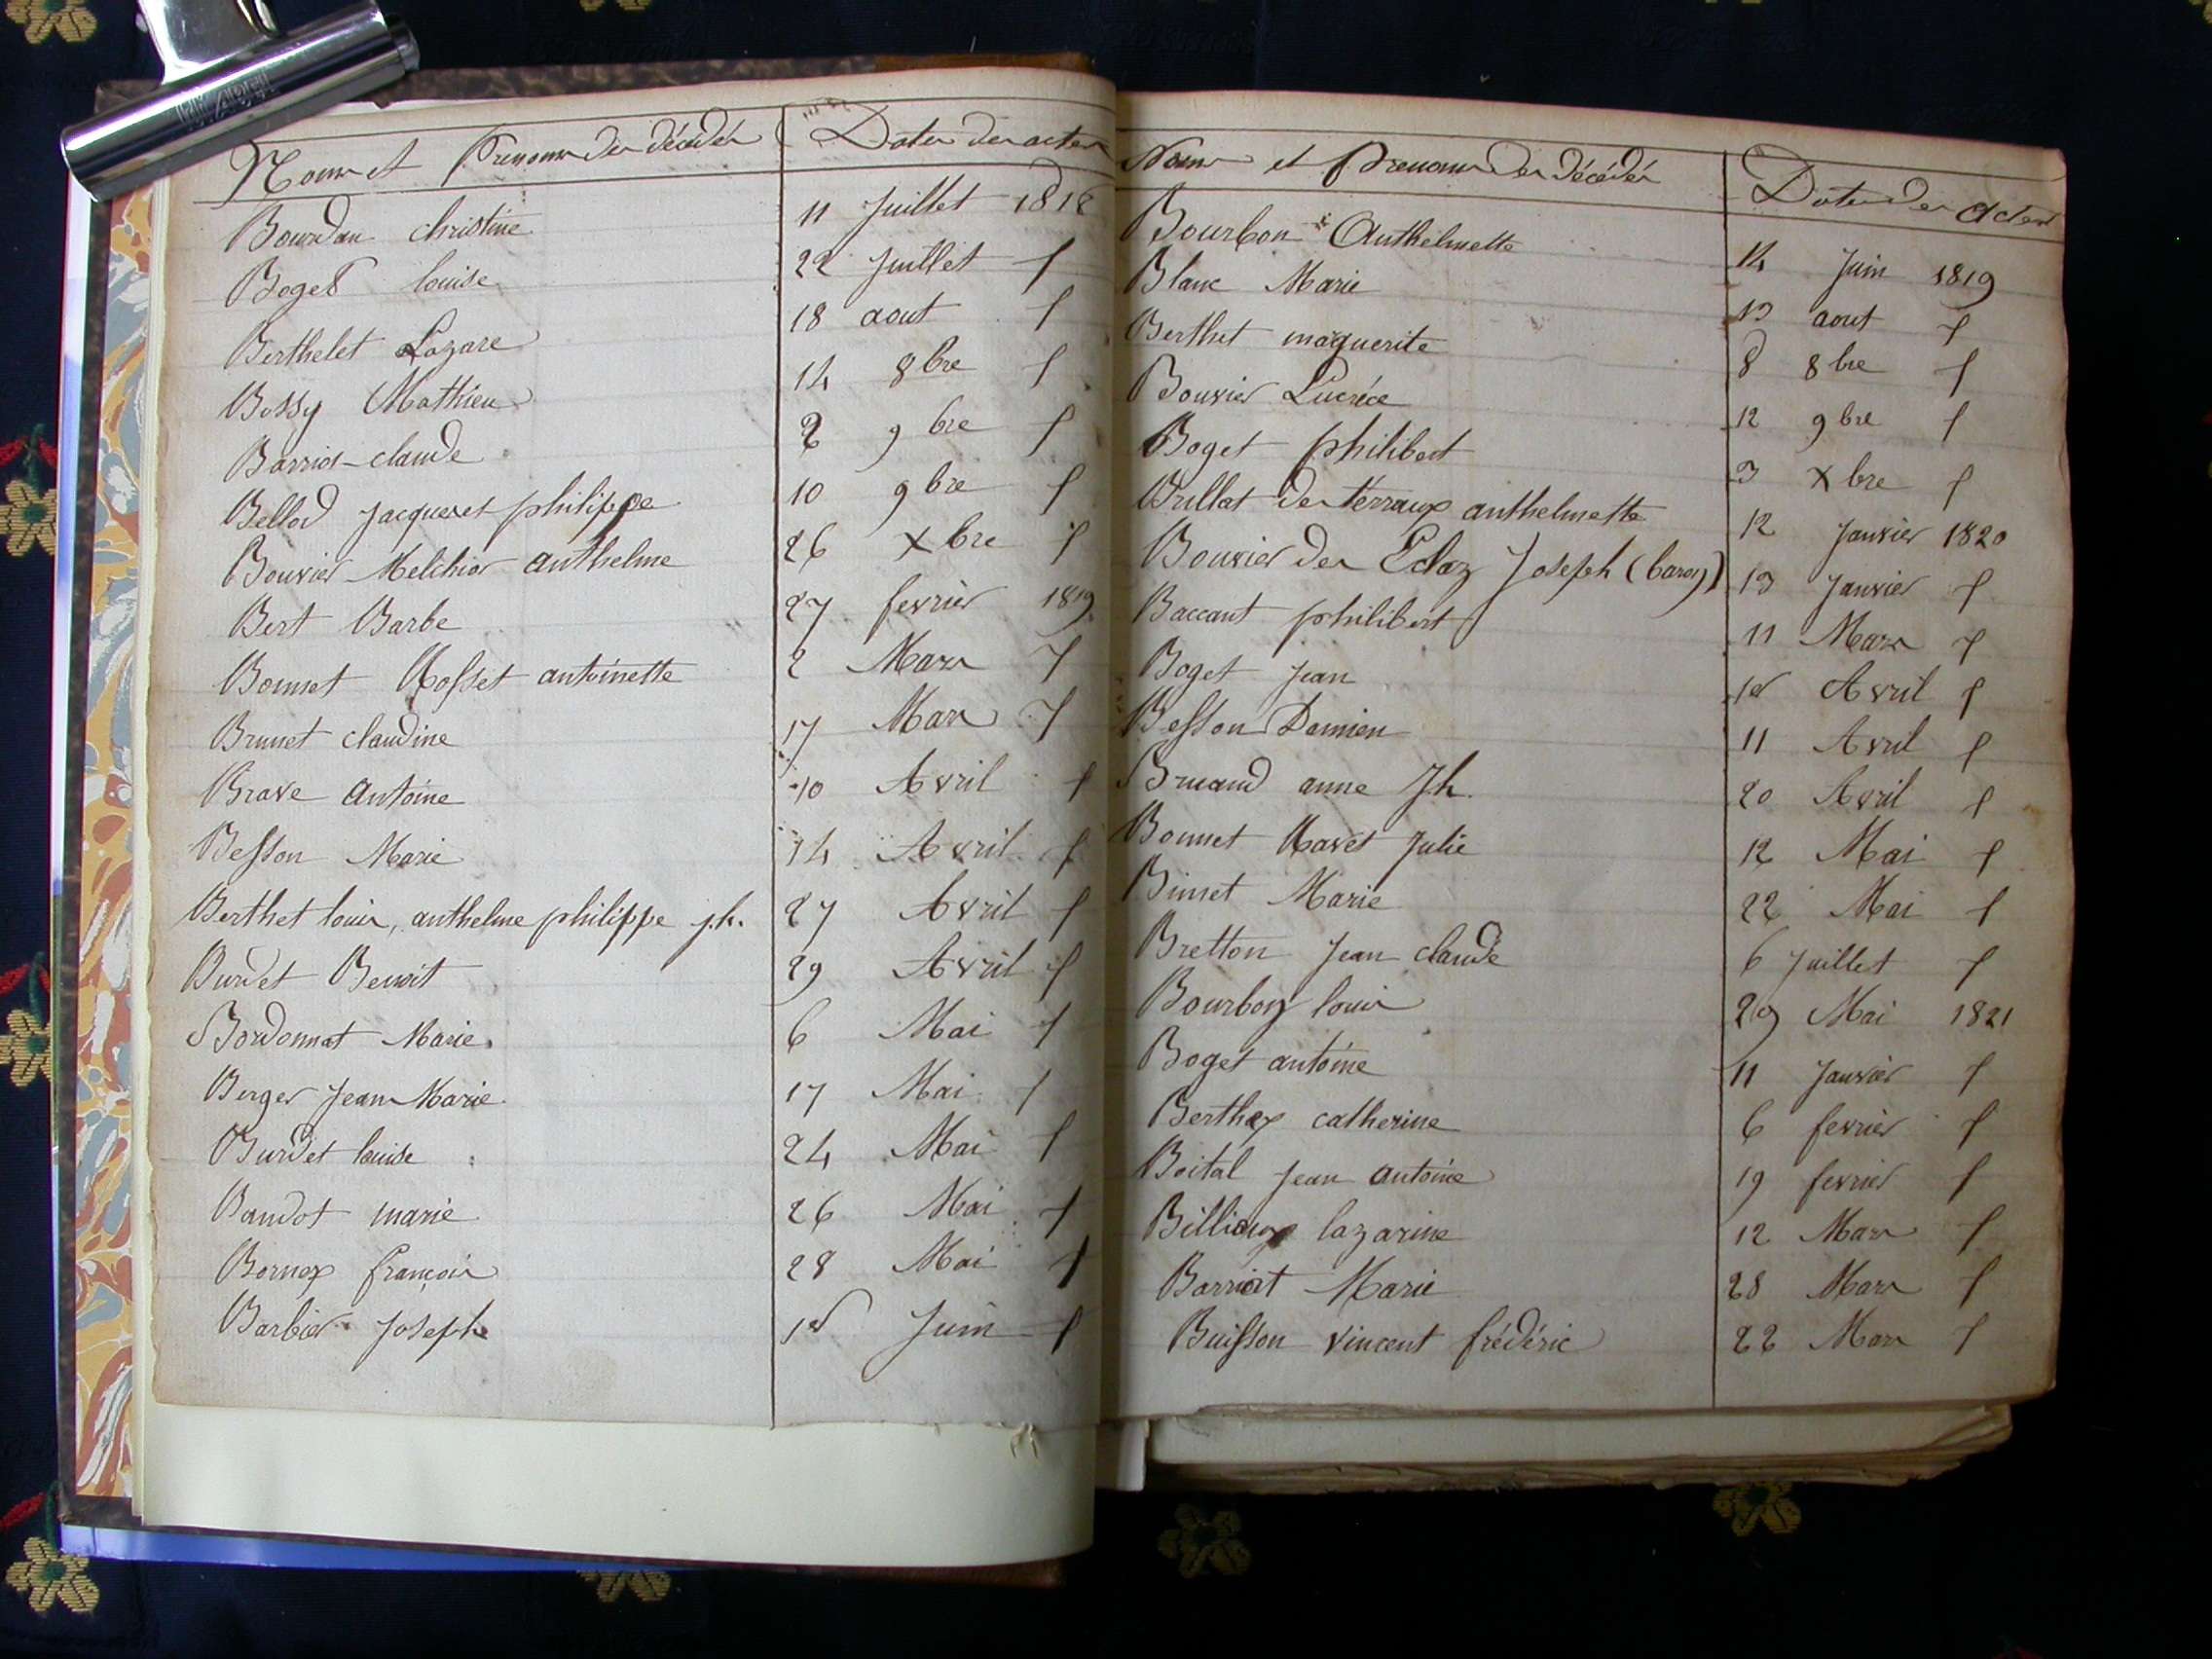 Noms et Prenoms des décédés Dates des actes
Bourdan christine 11 Juillet 1818
Boget louise 22 Juillet f
Berthelet Lazare 18 aout f
Bossy Mathieu 14 8bre f
Barriot claude 2 9bre f
Bellod Jacques et philippe 10 9bre f
Bouvier Melchior anthelme 26 Xbre f
Bert Barbe 27 fevrier 1819
Bonnet Rosset antoinette 2 Mars f
Brunet claudine 17 Mars f
Brave Antoine 10 Avril f
Besson Marie 14 Avril f
Berthet louis, anthelme philippe jh. 27 Avril f
Burdet Benoit 29 Avril f
Bordonnat Marie 6 Mai f
Berger Jean Marie 17 Mai f
Burdet louise 24 Mai f
Baudot marie 26 Mai f
Bornex françois 28 Mai f
Barbier Joseph 1er Juin f
Noms et Prenoms des décédés Dates des Actes
Bourbon Anthelmette 14 Juin 1819
Blanc Marie 13 aout f
Berthet marguerite 8 8bre f
Bouvier Lucréce 12 9bre f
Boget philibert 3 Xbre f
Brillat des terraux anthelmette 12 Janvier 1820
Bouvier des Eclaz Joseph (baron) 13 Janvier f
Baccant philibert 11 Mars f
Boget Jean 1er Avril f
Besson Damien 11 Avril f
Bruand anne Jh. 20 Avril f
Bonnet Ravet Julie 12 Mai f
Binet Marie 22 Mai f
Bretton Jean claude 6 Juillet f
Bourbon louis 29 Mai 1821
Boget antoine 11 Janvier f
Berthex catherine 6 fevrier f
Boital Jean Antoine 19 fevrier f
Billioux lazarine 12 Mars f
Barriot Marie 28 Mars f
Buisson Vincent frédéric 22 Mars f